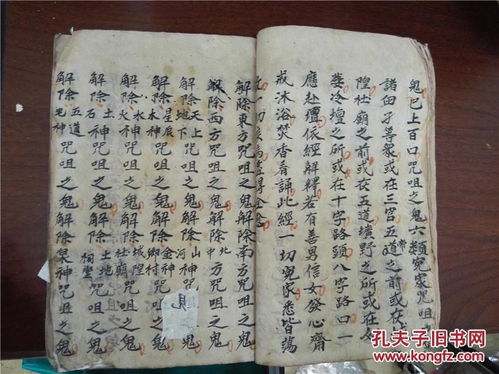 鬼巳上百口咒咀之鬼六類冤家咒咀
諸曰子等眾或在三宮五道之前或在
隍社廟之前或在五道墳野之所或在
塋冷壇之所或在十字路頭八字路口一
應赴壇依經解釋若有善男信女發心齋
戒沐浴焚香看誦此經一切冤家悉皆蕩
解除東方咒咀之鬼解除南方咒咀之鬼
解除西方咒咀之鬼解除北方咒咀之鬼
解除天上地下咒咀之鬼解除山神河
解除星辰木神咒咀之鬼解除金神鄉村咒咀之鬼
解除水神火神咒咀之鬼解除城隍社廟咒咀之鬼
解除石神咒咀之鬼解除土地咒咀之鬼
解除五道宅神咒咀之鬼解除神咒咀之鬼
孔夫子旧书网
www.kongfz.com